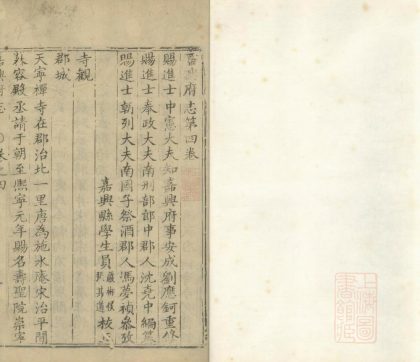 嘉興府志第四卷
賜進士中憲大夫知嘉興府事安成劉應鈳重修
賜進士奉政大夫南刑部郎中郡人沈堯中編纂
賜進士朝列大夫南國子祭酒郡人馮夢禎參攷
嘉興縣學生員
寺觀
郡城
天寧禪寺在郡治北一里唐為施水庵宋治平間
殿丞請于朝至熙寧元年賜名壽聖院崇寧